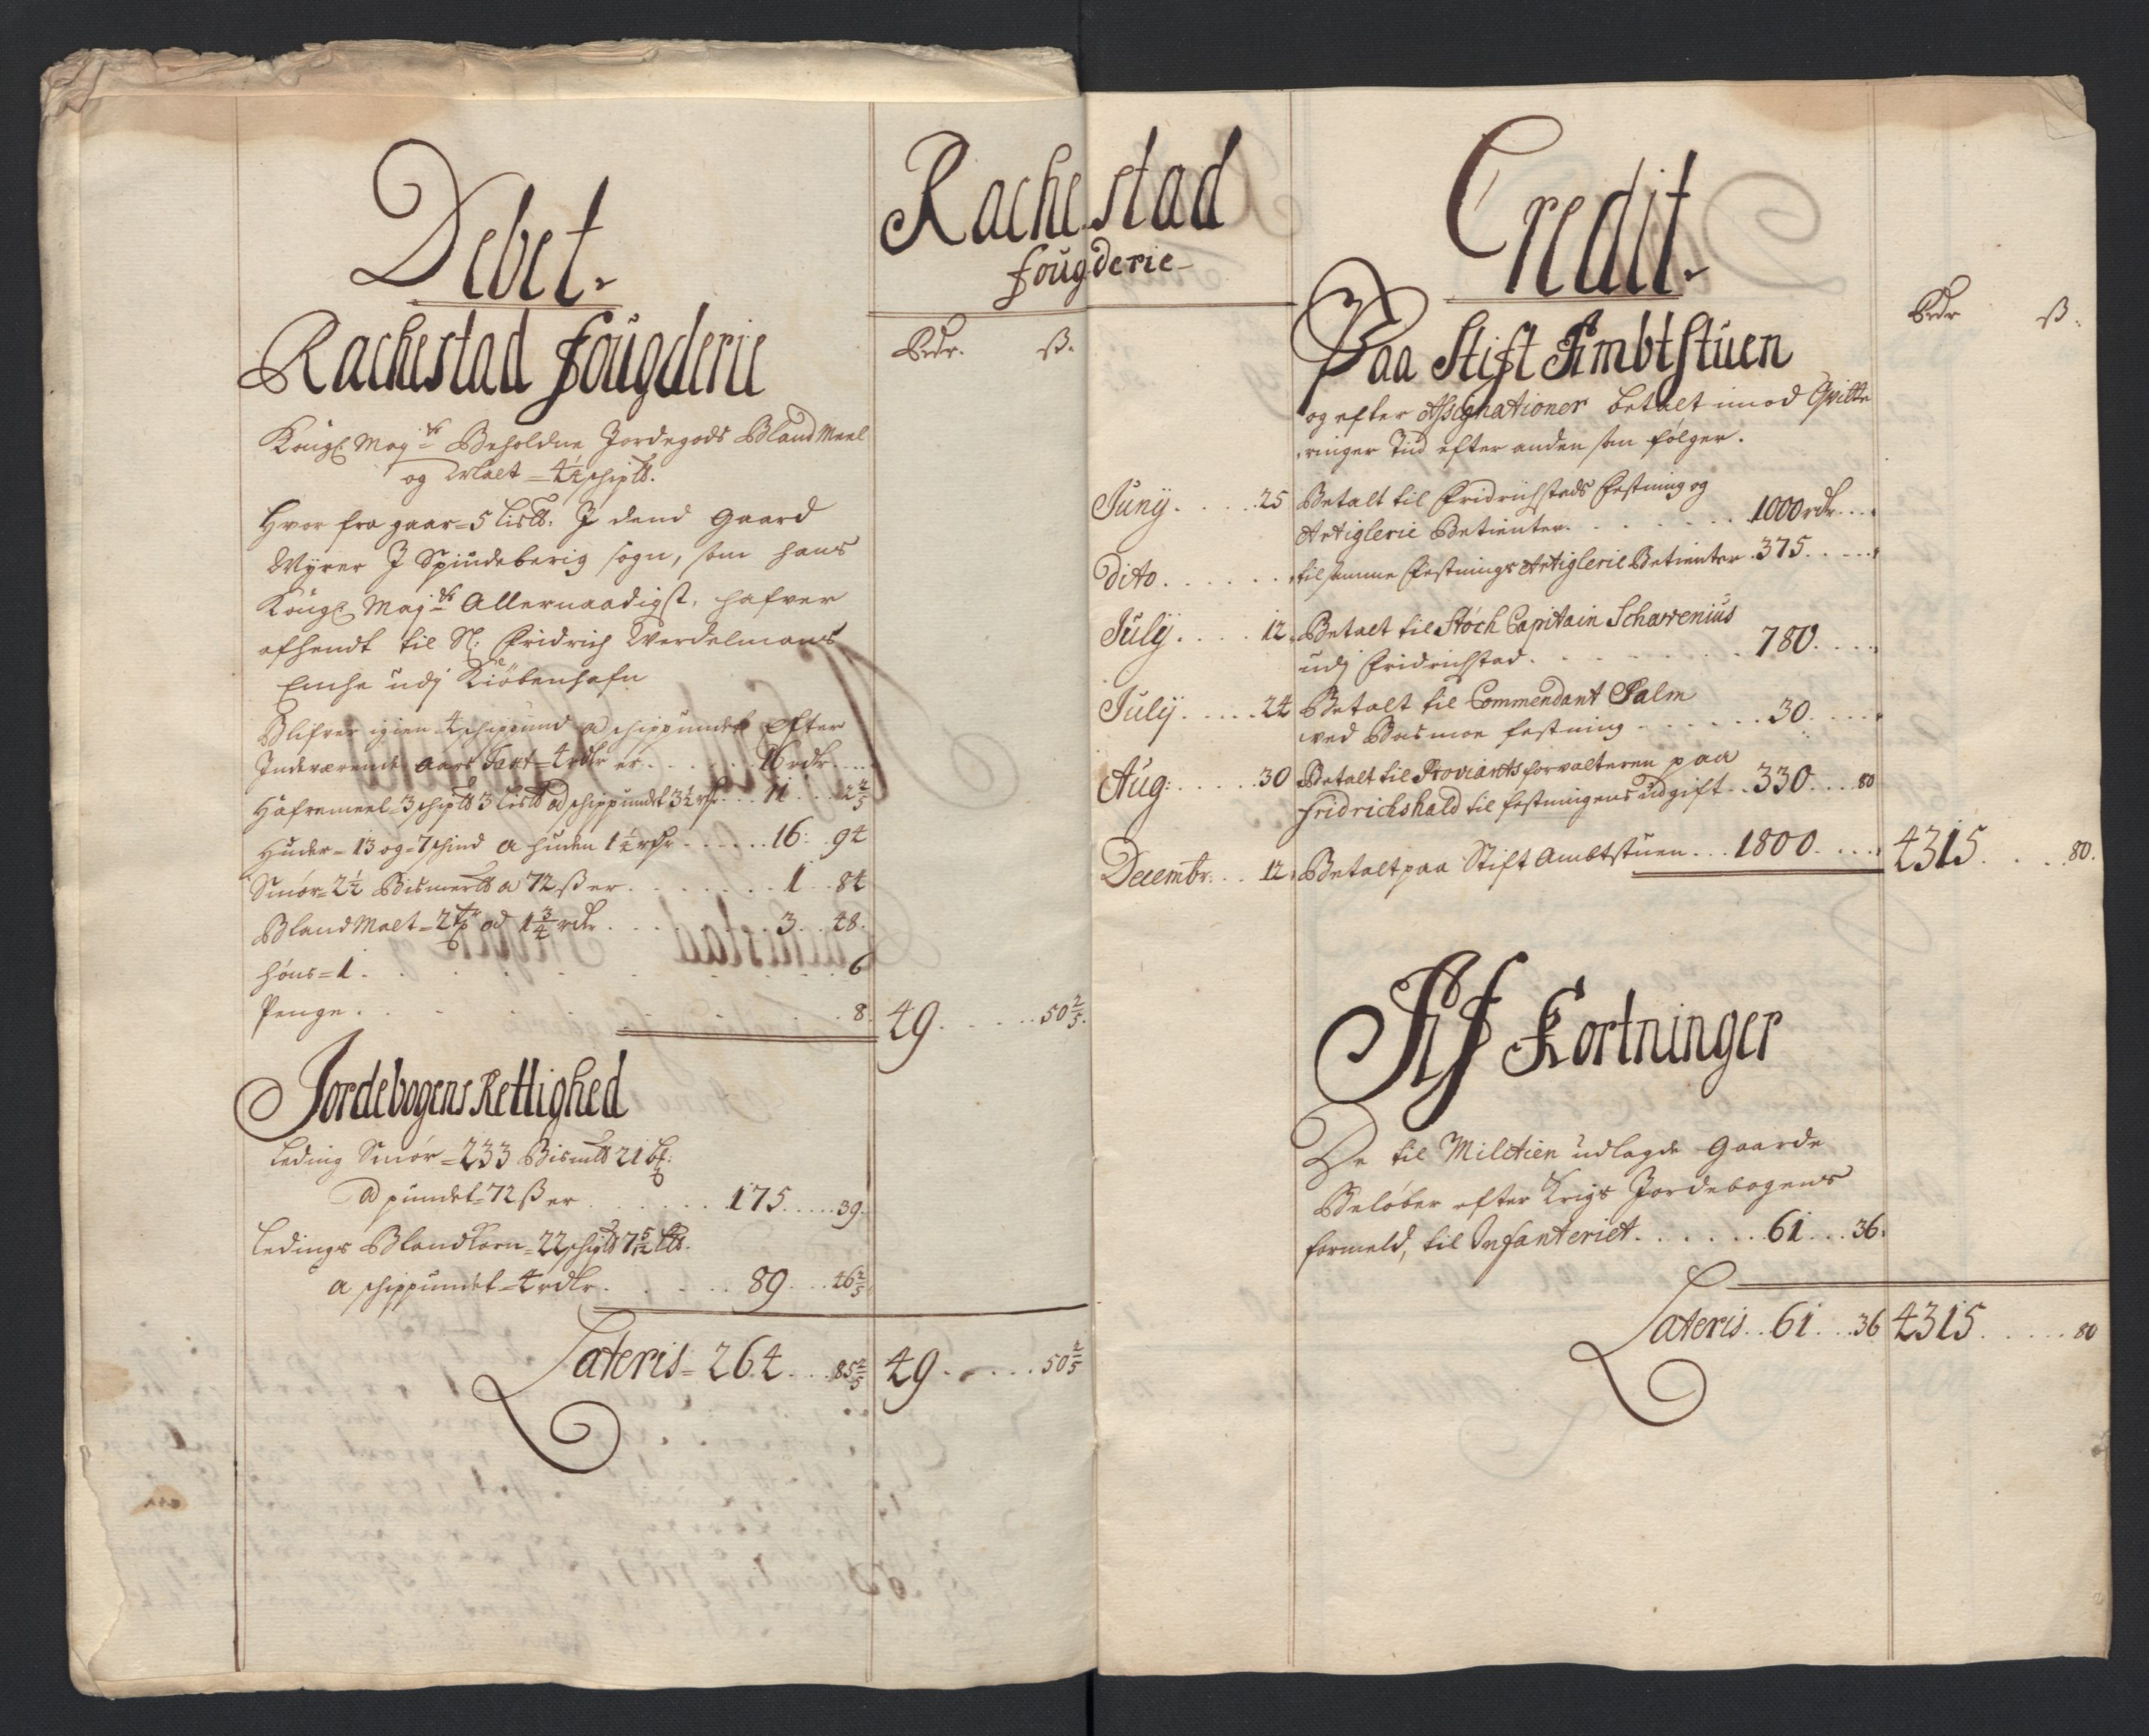 Debet.
Rachestad fougderie
Rdr. ß.
Rachestad fougderie
Kongl Mayts Beholdne Jordegods Bland Meel
og Malt = 4¼ schip℔.
Hvor fra gaar = 5 Lis℔. J dend Gaard
Myrer J Spindeberig sogn, som hans
Kongl Mayts Allernaadigst, hafver
afhendt til Sl: Fridrich Werdelmans
Enche udj Kiöbenhafn
Blifver igien 4 schippund a schippundet Efter
Indeværende Aars Taxt = 4 rdlr er . . . . . 16 rdr . . .
Hafremeel = 3 schip℔ 3 Lis℔ ad schippundet 3½ rdr . . 11 . . . 2 2/5
Huder = 13 og = 7 schind a huden 1¼ rdr . . . . . 16 : 94
Smör = 2½ Bismer℔ a 72 ß er . . . . . . 1 . . 84
Bland Malt = 2 tr ad 1¾ rdlr . . . . . . 3 . . 48.
Höns = 1 . . . . . . . . 6
Penge . . . . . . . . 8. 49. . . . . 50 2/5.
Jordebogens Rettighed
Leding Smör = 233 Bism℔ 21 ℔:
ad pundet = 72 ß er . . . . . . 175. . . . . 39.
Ledings Blandkorn = 22 schip℔ 7 5/12 L℔.
a schippundet = 4 rdlr . . . . . 89 . . . 46 2/5
Lateris = 264 . . . 85 2/5 49 . . . . . 50 2/5
Credit.
Rdr ß.
Paa Stift Ambtstuen
og efter Assignationer betalt imod Qvitte
ringer Tid efter anden som fölger.
Juny. . . . . 25 Betalt til Fridrichstads Festning og
Artiglerie Betienter. . . . . . . 1000 rdr. . . .
Dito . . . . . . til samme Festnings Artiglerie Betienter . 375. . . . .
July. . . . . 12. Betalt til Stöch Capitain Scharrenius
udj Fridrichstad. . . . . . . . 780. . . . .
July. . . . . 24 Betalt til Commendant Palm
ved Basmoe festning . . . . . . 30. . . . .
Aug: . . . . . 30 Betalt til Proviantsforvalteren paa
Fridrichshald til festningens udgift . . 330. . . . 80
Decembr. . . 12. Betalt paa Stift Ambtstuen . . . 1800. . . . . 4315. . . . 80.
Af Kortninger
De til Militien udlagde Gaarde
Belöber efter Krigs Jordebogens
formeld, til Infanteriet. . . . . . . 61 . . . 36.
Lateris . . 61 . . . 36 4315. . . . . . 80